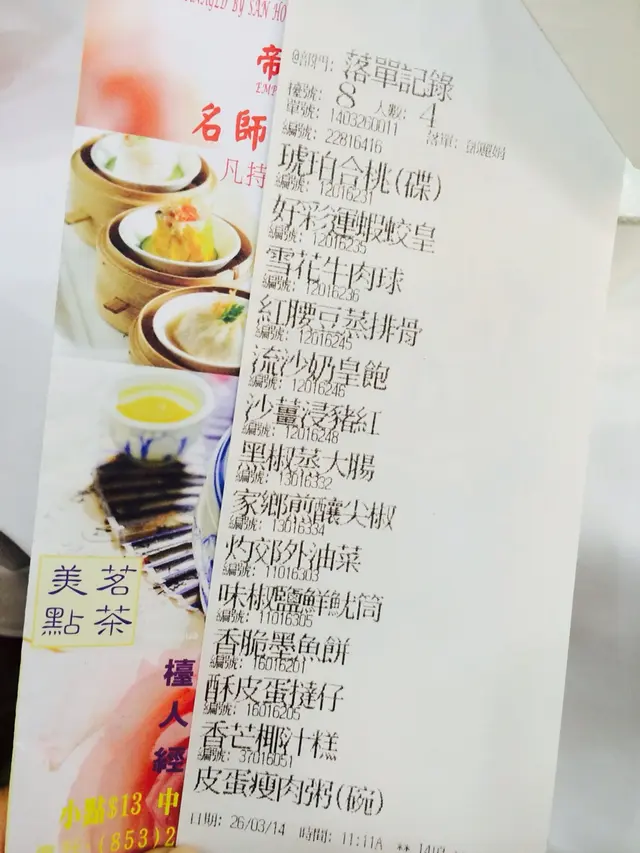 MANAGED BY SAN HO
帝
EMP
名師
凡持
美茗
點茶
檯
人
經
小點$13 中
(853)2
@部門: 落單記錄
檯號: 8 人數: 4
單號: 1403260011 落單: 鄧麗娟
編號: 22816416
琥珀合桃(碟)
編號: 12016231
好彩運蝦蛟皇
編號: 12016235
雪花牛肉球
編號: 12016236
紅腰豆蒸排骨
編號: 12016245
流沙奶皇飽
編號: 12016246
沙薑浸豬紅
編號: 12016248
黑椒蒸大腸
編號: 13016332
家鄉煎釀尖椒
編號: 13016334
灼郊外油菜
編號: 11016303
味椒鹽鮮魷筒
編號: 11016305
香脆墨魚餅
編號: 16016201
酥皮蛋撻仔
編號: 16016205
香芒椰汁糕
編號: 37016051
皮蛋瘦肉粥(碗)
日期: 26/03/14 時間: 11:11A